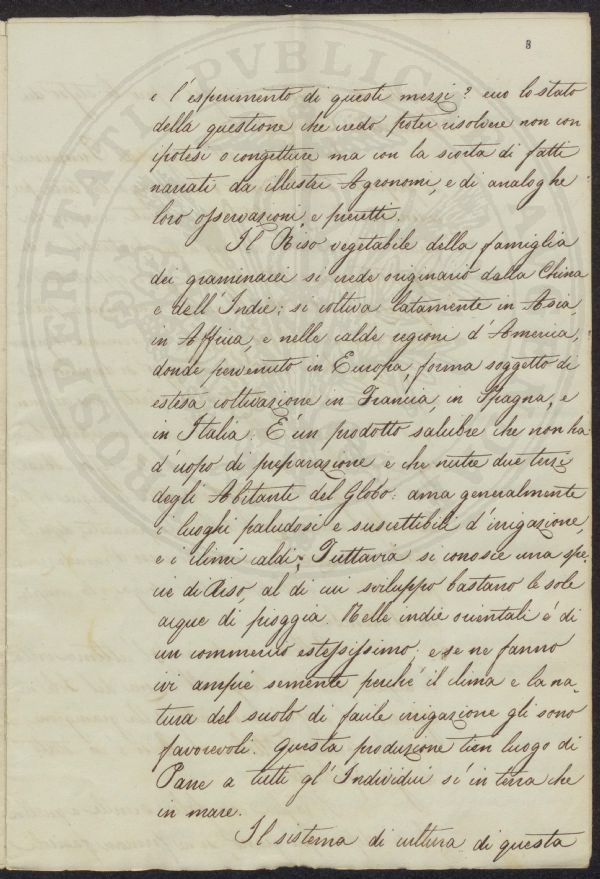 8
e l'esperimento di questi mezzi? ecco lo stato
della questione che credo poter risolvere non con
ipotesi o congetture ma con la scorta di fatti
narrati da illustri Agronomi, e di analoghe
loro osservazioni, e precetti.
Il Riso vegetabile della famiglia
dei graminacei si crede originario dalla China
e dell'Indie; si coltiva latamente in Asia,
in Affrica, e nelle calde regioni d'America,
donde pervenuto in Europa, forma soggetto di
estesa coltivazione in Francia, in Spagna, e
in Italia. E' un prodotto salubre che non ha
d'uopo di preparazione e che nutre due terzi
degli Abitante del Globo: ama generalmente
i luoghi paludosi e suscettibili d'irrigazione,
e i climi caldi; Tuttavia si conosce una spe-
cie di Riso, al di cui sviluppo bastano le sole
acque di pioggia. Nelle indie orientali é di
un commercio estesissimo: e se ne fanno
ivi ampie semente perché il clima e la na-
tura del suolo di facile irrigazione gli sono
favorevoli. Questa produzione tien luogo di
Pane a tutti gl'Individui sí in terra che
in mare.
Il sistema di cultura di questa
PROSPERITATI PVBLICAE